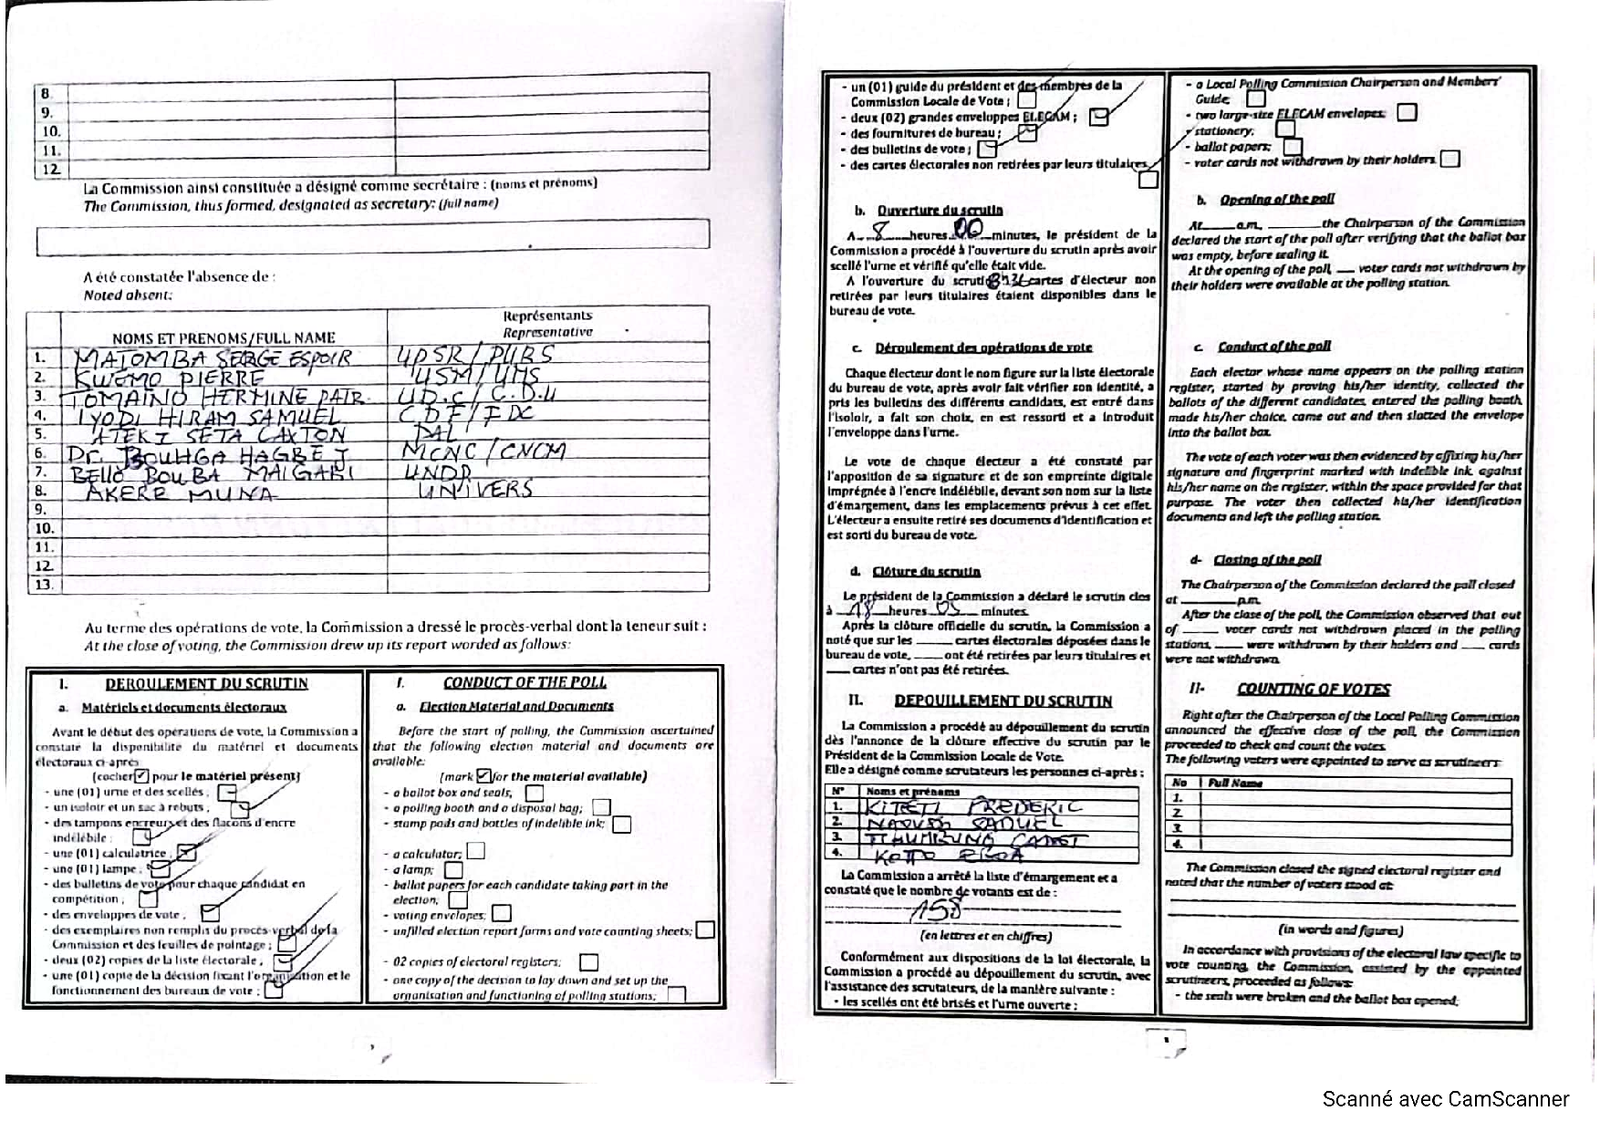 8.
9.
10.
11.
12.
La Commission ainsi constituée a désigné comme secrétaire : (noms et prénoms)
The Commission, thus formed, designated as secretary: (full name)
A été constatée l'absence de :
Noted absent:
NOMS ET PRENOMS/FULL NAME
Représentants
Representative
1. MATOMBA SERGE ESPOIR UPSR/PURS
2. KWEMO PIERRE USM/UMS
3. TOMAINO HERMINE PATR. UD.C/C.D.U
4. IYODI HIRAM SAMUEL CDF/FDC
5. ATEKI SETA CAXTON PAL
6. Dr. BOUHGA HAGBE J MCNC/CNCM
7. BELLO BOUBA MAIGARI UNDP
8. AKERE MUNA UNIVERS
9.
10.
11.
12.
13.
Au terme des opérations de vote, la Commission a dressé le procès-verbal dont la teneur suit :
At the close of voting, the Commission drew up its report worded as follows:
I. DEROULEMENT DU SCRUTIN
a. Matériels et documents électoraux
Avant le début des opérations de vote, la Commission a
constaté la disponibilité du matériel et documents
électoraux ci-après
(cocher pour le matériel présent)
- une (01) urne et des scellés ;
- un isoloir et un sac à rebuts ;
- des tampons encreurs et des flacons d'encre
indélébile ;
- une (01) calculatrice ;
- une (01) lampe ;
- des bulletins de vote pour chaque candidat en
compétition ;
- des enveloppes de vote ;
- des exemplaires non remplis du procès-verbal de la
Commission et des feuilles de pointage ;
- deux (02) copies de la liste électorale ;
- une (01) copie de la décision fixant l'organisation et le
fonctionnement des bureaux de vote ;
I. CONDUCT OF THE POLL
a. Election Material and Documents
Before the start of polling, the Commission ascertained
that the following election material and documents are
available:
(mark for the material available)
- a ballot box and seals;
- a polling booth and a disposal bag;
- stamp pads and bottles of indelible ink;
- a calculator;
- a lamp;
- ballot papers for each candidate taking part in the
election;
- voting envelopes;
- unfilled election report forms and vote counting sheets;
- 02 copies of electoral registers;
- one copy of the decision to lay down and set up the
organisation and functioning of polling stations;
- un (01) guide du président et des membres de la
Commission Locale de Vote ;
- deux (02) grandes enveloppes ELECAM ;
- des fournitures de bureau ;
- des bulletins de vote ;
- des cartes électorales non retirées par leurs titulaires
b. Ouverture du scrutin
A 8 heures 00 minutes, le président de la
Commission a procédé à l'ouverture du scrutin après avoir
scellé l'urne et vérifié qu'elle était vide.
A l'ouverture du scrutin cartes d'électeur non
retirées par leurs titulaires étaient disponibles dans le
bureau de vote.
c. Déroulement des opérations de vote
Chaque électeur dont le nom figure sur la liste électorale
du bureau de vote, après avoir fait vérifier son identité, a
pris les bulletins des différents candidats, est entré dans
l'isoloir, a fait son choix, en est ressorti et a introduit
l'enveloppe dans l'urne.
Le vote de chaque électeur a été constaté par
l'apposition de sa signature et de son empreinte digitale
imprégnée à l'encre indélébile, devant son nom sur la liste
d'émargement, dans les emplacements prévus à cet effet.
L'électeur a ensuite retiré ses documents d'identification et
est sorti du bureau de vote.
d. Clôture du scrutin
Le président de la Commission a déclaré le scrutin clos
à 18 heures 05 minutes.
Après la clôture officielle du scrutin, la Commission a
noté que sur les ______ cartes électorales déposées dans le
bureau de vote, ____ ont été retirées par leurs titulaires et
____ cartes n'ont pas été retirées.
II. DEPOUILLEMENT DU SCRUTIN
La Commission a procédé au dépouillement du scrutin
dès l'annonce de la clôture effective du scrutin par le
Président de la Commission Locale de Vote.
Elle a désigné comme scrutateurs les personnes ci-après :
N° Noms et prénoms
1. FREDERIC
2. SAMUEL
3.
4. KOTTO
La Commission a arrêté la liste d'émargement et a
constaté que le nombre de votants est de :
158
(en lettres et en chiffres)
Conformément aux dispositions de la loi électorale, la
Commission a procédé au dépouillement du scrutin, avec
l'assistance des scrutateurs, de la manière suivante :
- les scellés ont été brisés et l'urne ouverte ;
- a Local Polling Commission Chairperson and Members'
Guide;
- two large-size ELECAM envelopes;
- stationery;
- ballot papers;
- voter cards not withdrawn by their holders
b. Opening of the poll
At____a.m, ________the Chairperson of the Commission
declared the start of the poll after verifying that the ballot box
was empty, before sealing it.
At the opening of the poll, ___ voter cards not withdrawn by
their holders were available at the polling station.
c. Conduct of the poll
Each elector whose name appears on the polling station
register, started by proving his/her identity, collected the
ballots of the different candidates, entered the polling booth
made his/her choice, came out and then slotted the envelope
into the ballot box.
The vote of each voter was then evidenced by affixing his/her
signature and fingerprint marked with indelible ink, against
his/her name on the register, within the space provided for that
purpose. The voter then collected his/her identification
documents and left the polling station.
d- Closing of the poll
The Chairperson of the Commission declared the poll closed
at ________ p.m.
After the close of the poll, the Commission observed that out
of _____ voter cards not withdrawn placed in the polling
stations, ____ were withdrawn by their holders and ____ cards
were not withdrawn.
II- COUNTING OF VOTES
Right after the Chairperson of the Local Polling Commission
announced the effective close of the poll, the Commission
proceeded to check and count the votes.
The following voters were appointed to serve as scrutineers:
No Full Name
1.
2.
3.
4.
The Commission closed the signed electoral register and
noted that the number of voters stood at:
(in words and figures)
In accordance with provisions of the electoral law specific to
vote counting, the Commission, assisted by the appointed
scrutineers, proceeded as follows:
- the seals were broken and the ballot box opened;
Scanné avec CamScanner